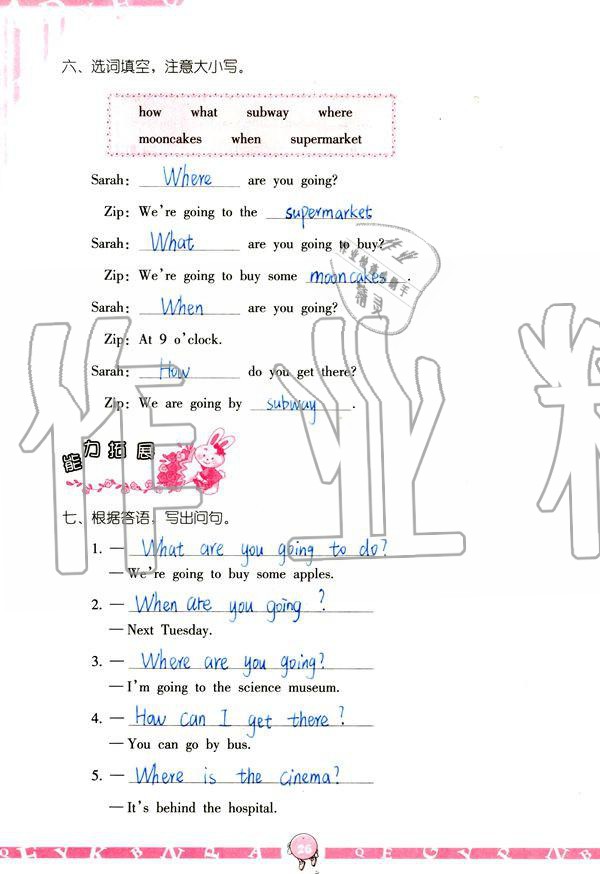 六、选词填空，注意大小写。
how what subway where
mooncakes when supermarket
Sarah: Where are you going?
Zip: We're going to the supermarket
Sarah: What are you going to buy?
Zip: We're going to buy some mooncakes.
Sarah: When are you going?
Zip: At 9 o'clock.
Sarah: How do you get there?
Zip: We are going by subway.
能力拓展
七、根据答语，写出问句。
1. — What are you going to do?
— We're going to buy some apples.
2. — When are you going?
— Next Tuesday.
3. — Where are you going?
— I'm going to the science museum.
4. — How can I get there?
— You can go by bus.
5. — Where is the cinema?
— It's behind the hospital.
26